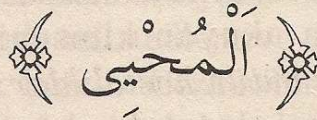 اَلْمُحْيِى